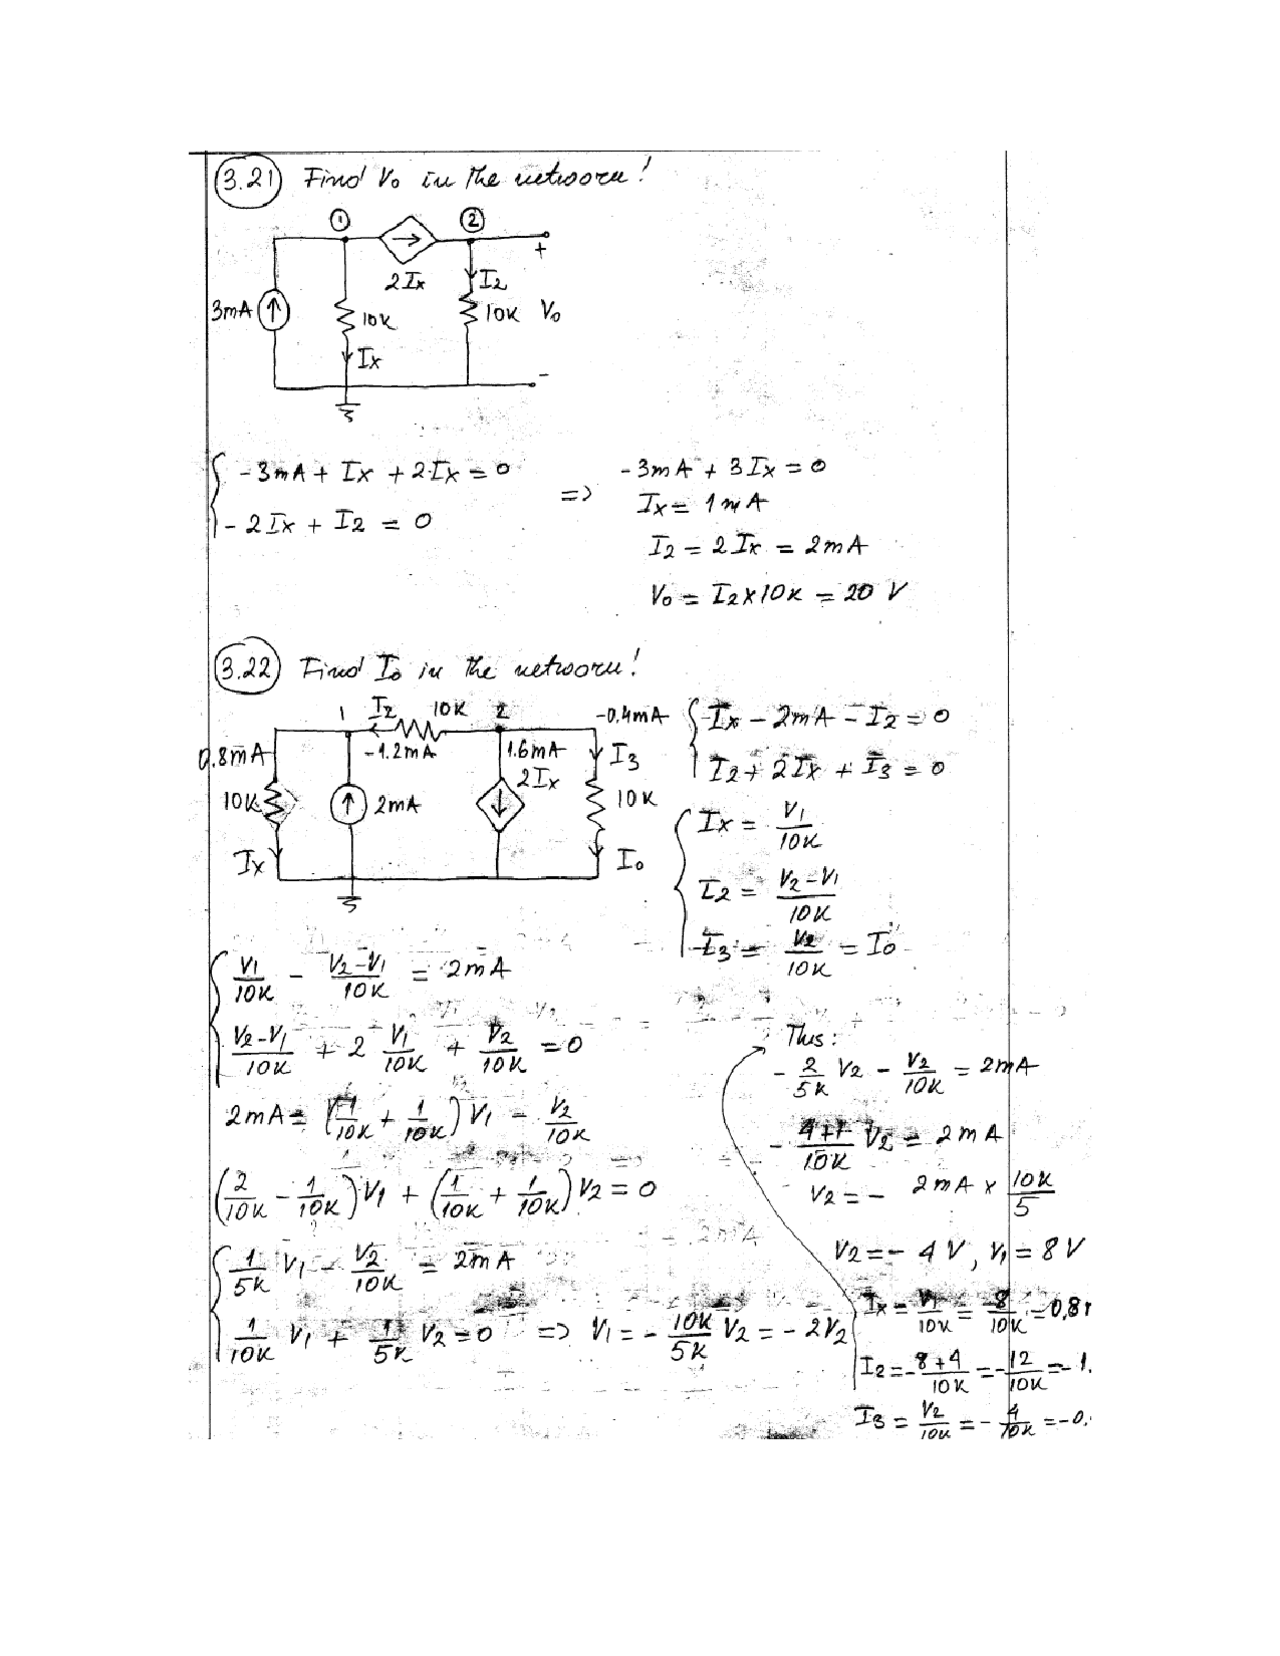 3.21 Find Vo in the network!
① ②
+
2Ix I2
3mA 10K 10K Vo
Ix
-
-3mA + Ix + 2·Ix = 0
-2Ix + I2 = 0
=>
-3mA + 3Ix = 0
Ix = 1mA
I2 = 2Ix = 2mA
Vo = I2 x 10K = 20 V
3.22 Find Io in the network!
1 I2 10K 2 -0.4mA
0.8mA -1.2mA 1.6mA I3
2Ix
10K 2mA 10K
Ix Io
Ix - 2mA - I2 = 0
I2 + 2Ix + I3 = 0
Ix = V1/10K
I2 = V2-V1/10K
I3 = V2/10K = Io
V1/10K - V2-V1/10K = 2mA
V2-V1/10K + 2 V1/10K + V2/10K = 0
2mA = (1/10K + 1/10K) V1 - V2/10K
(2/10K - 1/10K) V1 + (1/10K + 1/10K) V2 = 0
1/5K V1 - V2/10K = 2mA
1/10K V1 + 1/5K V2 = 0 => V1 = - 10K/5K V2 = -2V2
This:
- 2/5K V2 - V2/10K = 2mA
- 4+1/10K V2 = 2mA
V2 = - 2mA x 10K/5
V2 = - 4V, V1 = 8V
Ix = V1/10K = 8/10K = 0,8
I2 = - 8+4/10K = - 12/10K = - 1.
I3 = V2/10K = - 4/10K = -0.